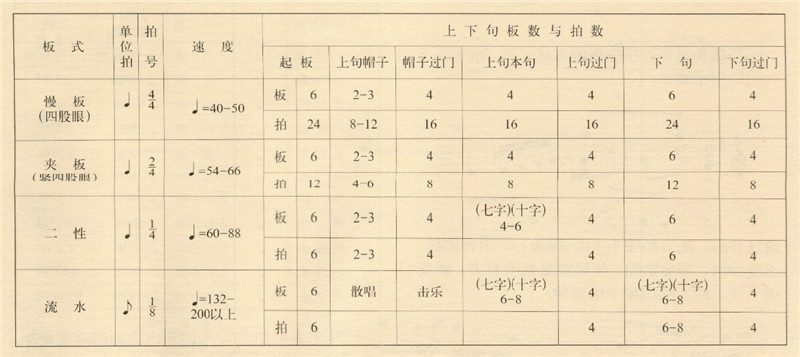 板 式 单位拍 拍号 速 度 上 下 句 板 数 与 拍 数
起 板 上句帽子 帽子过门 上句本句 上句过门 下 句 下句过门
慢 板 (四股眼) ♩ 4/4 ♩=40-50 板 6 2-3 4 4 4 6 4
拍 24 8-12 16 16 16 24 16
夹 板 (紧四股眼) ♩ 2/4 ♩=54-66 板 6 2-3 4 4 4 6 4
拍 12 4-6 8 8 8 12 8
二 性 ♩ 1/4 ♩=60-88 板 6 2-3 4 (七字)(十字) 4-6 4 6 4
拍 6 2-3 4 4 6 4
流 水 ♪ 1/8 ♩=132-200以上 板 6 散唱 击乐 (七字)(十字) 6-8 4 (七字)(十字) 6-8 4
拍 6 4 6-8 4